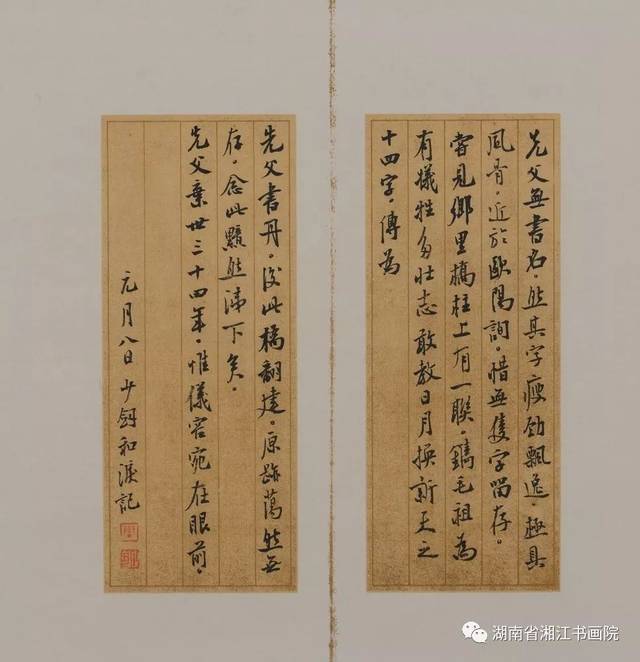 先父無書名。然其字瘦勁飄逸。極具
風骨。近於歐陽詢。惜無隻字留存。
嘗見鄉里橋柱上有一聯。鐫毛祖為
有犧牲多壯志敢教日月換新天之
十四字。傳為
先父書丹。後此橋翻建。原跡蕩然無
存。念此黯然涕下矣。
先父棄世三十四年。惟儀容宛在眼前。
元月八日少
和淚記
湖南省湘江书画院